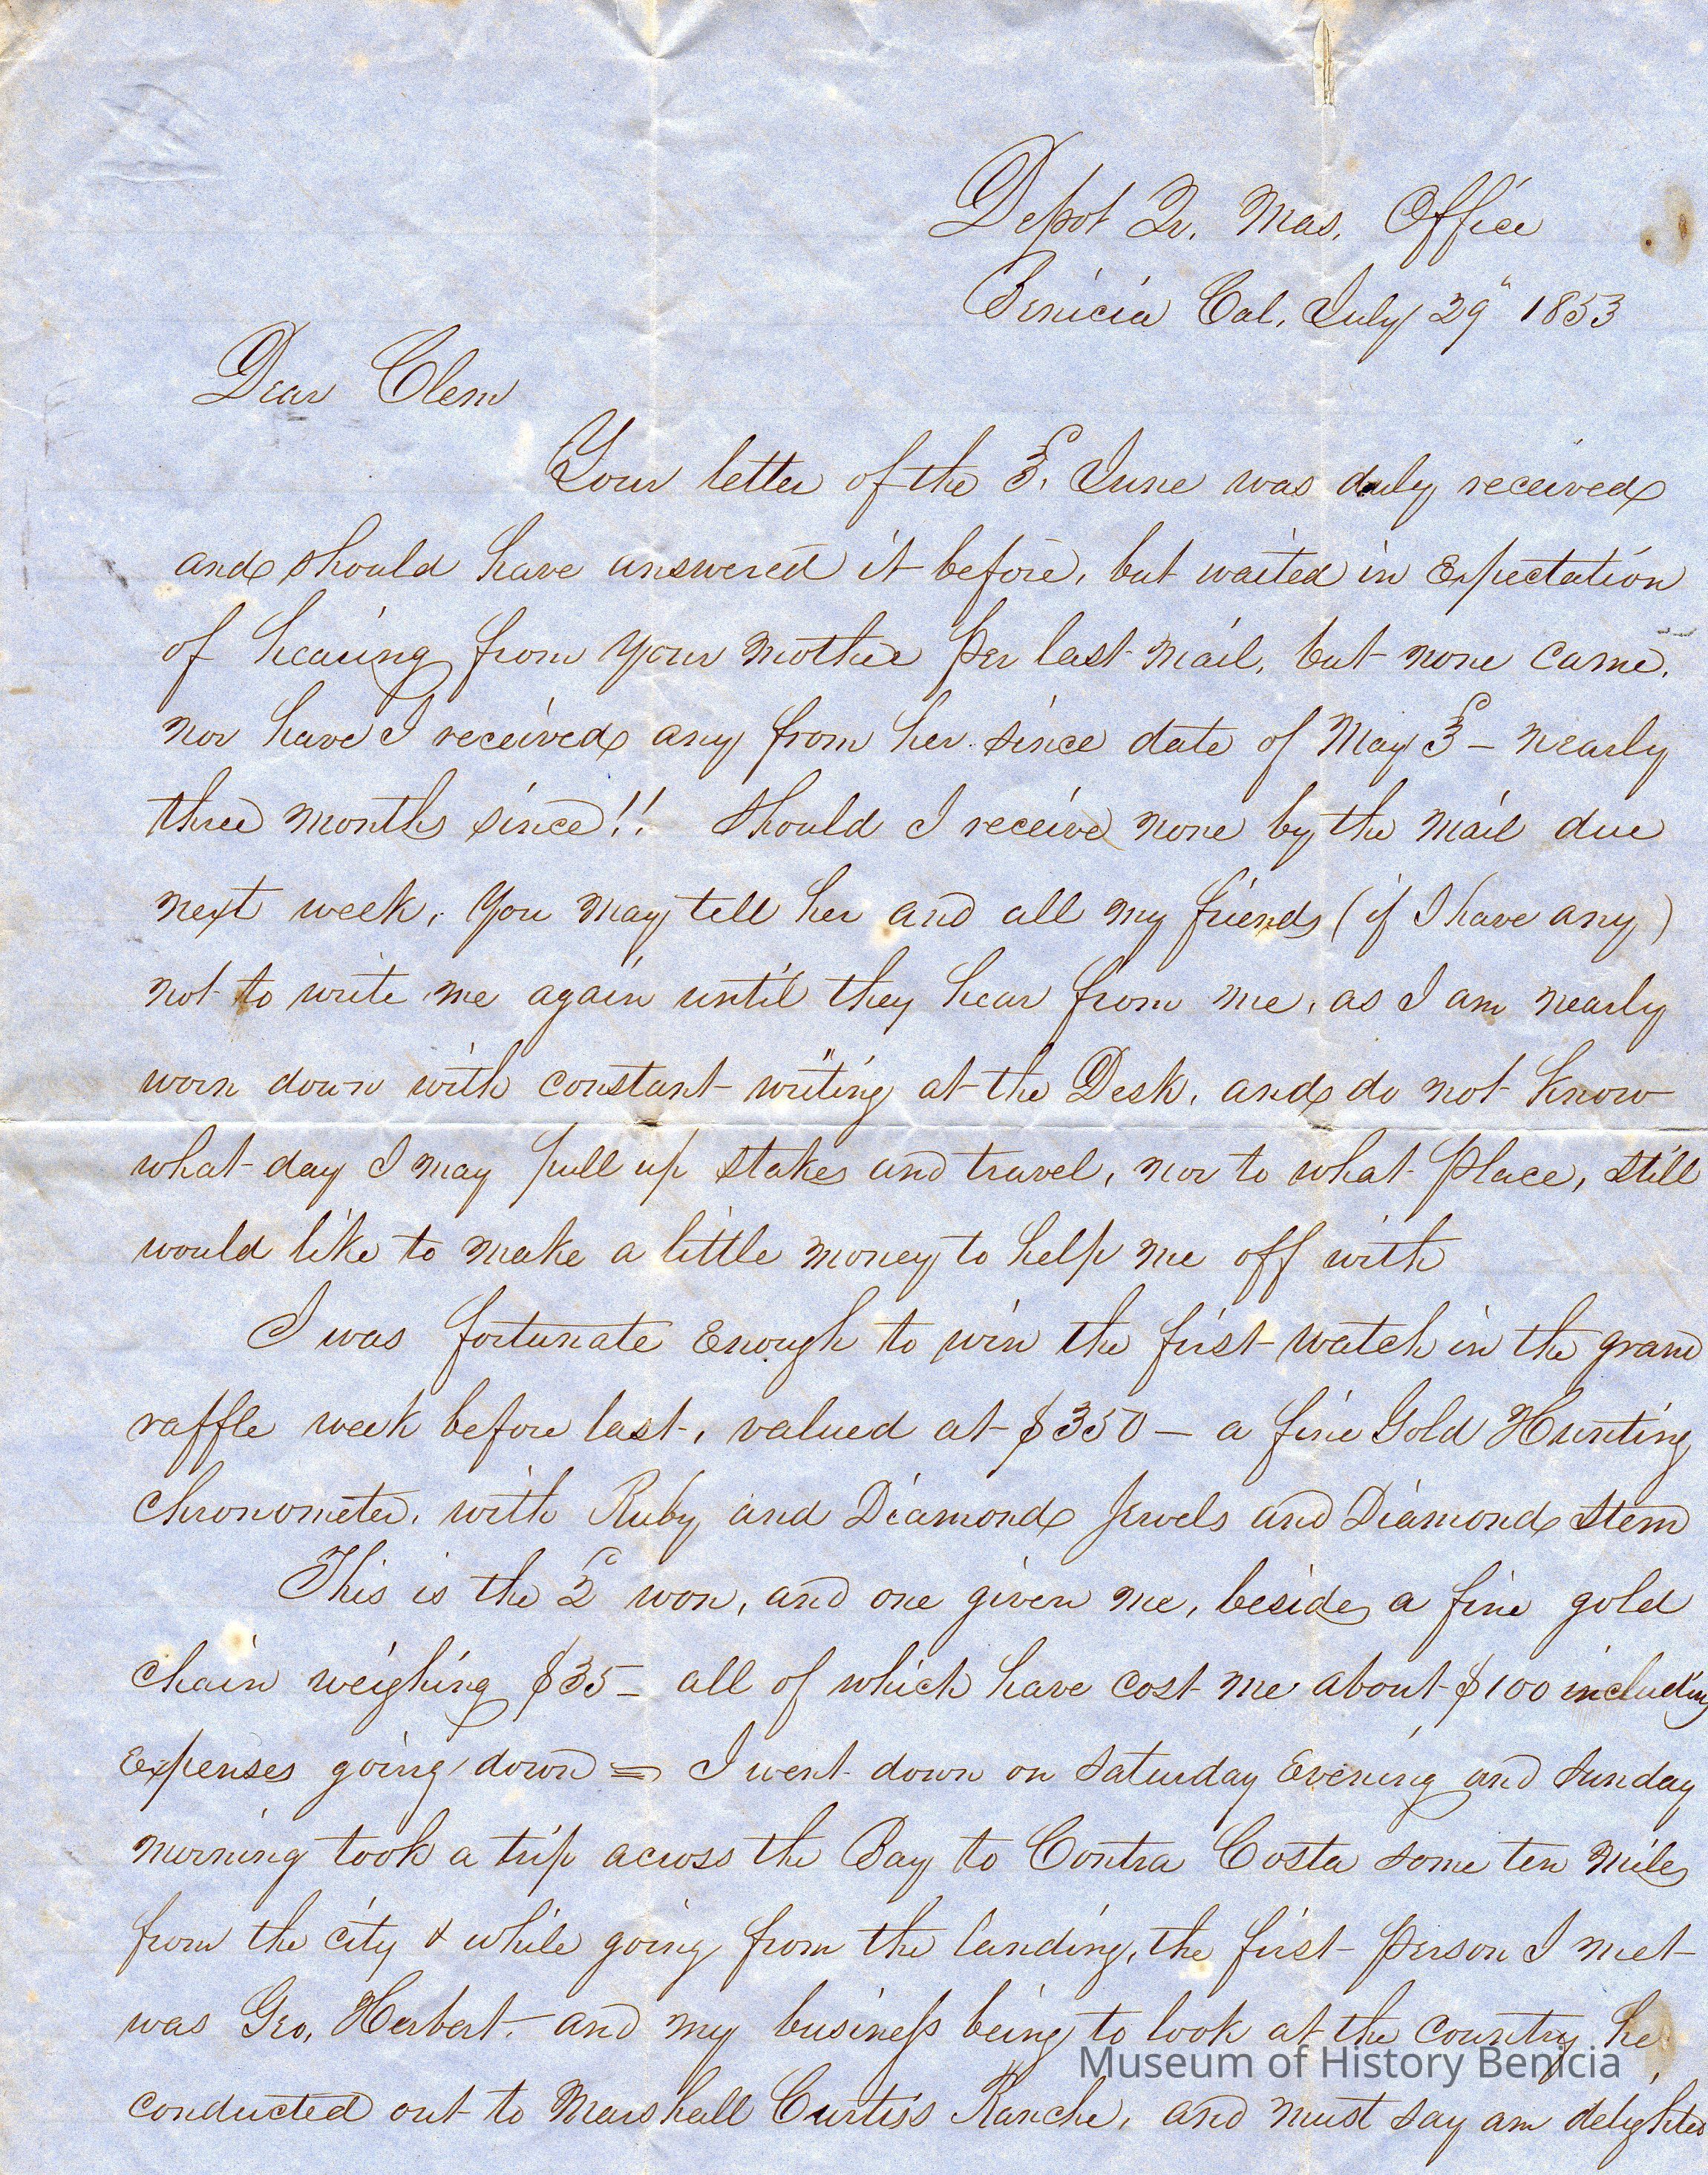 Depot Qr. Mas. Office
Benicia Cal. July 29" 1853
Dear Clem
Your letter of the 3d. June was duly received
and should have answered it before, but waited in Expectation
of hearing from your mother per last mail, but none came.
nor have I received any from her since date of May 3d – nearly
three months since!! Should I receive none by the mail due
next week, you may tell her and all my friends (if I have any)
not to write me again until they hear from me, as I am nearly
worn down with constant writing at the Desk, and do not know
what day I may pull up stakes and travel, nor to what place, still
would like to make a little money to help me off with
I was fortunate Enough to win the first watch in the grand
raffle week before last, valued at $350 – a fine Gold Hunting
Chronometer, with Ruby and Diamond Jewels and Diamond Stem
This is the 2d won, and one given me, besides a fine gold
chain weighing $35 – all of which have cost me about $100 including
Expenses going down = I went down on Saturday Evening and Sunday
morning took a trip across the Bay to Contra Costa some ten miles
from the city & while going from the landing, the first person I met
was Geo. Herbert. and my business being to look at the country he
conducted out to Marshall Curtiss Ranche, and must say am delighted
Museum of History Benicia